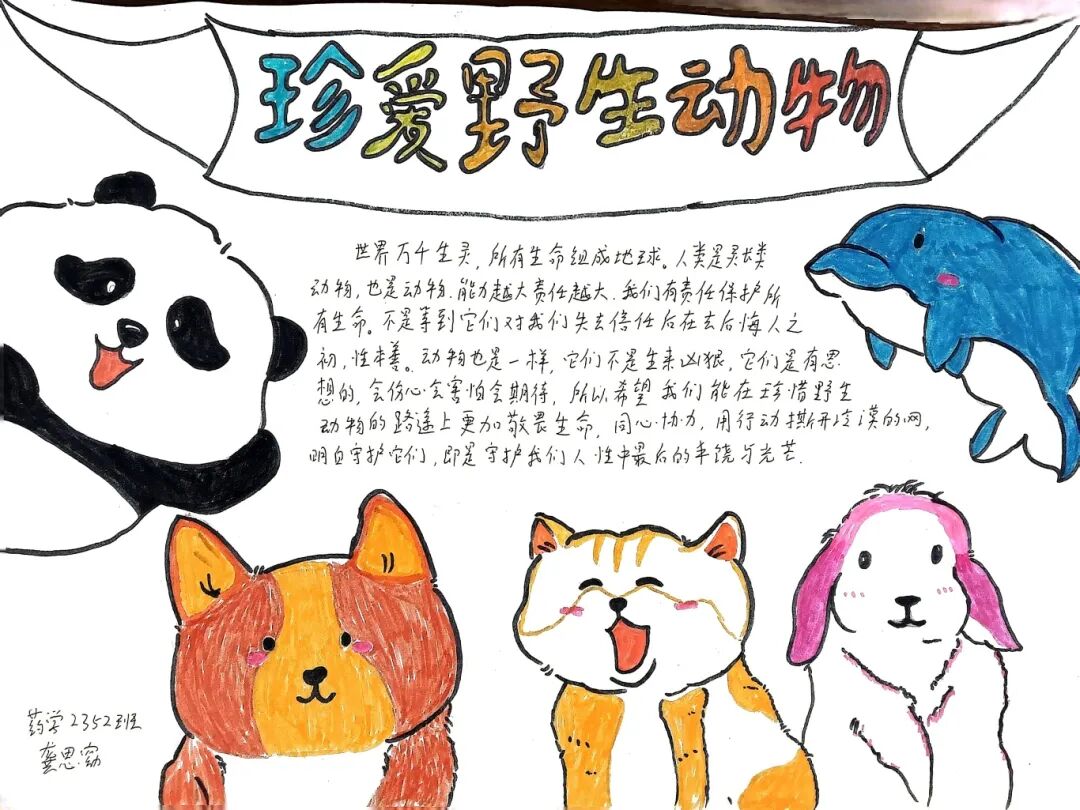 珍爱野生动物
世界万千生灵，所有生命组成地球。人类是灵长类
动物，也是动物，能力越大责任越大，我们有责任保护所
有生命。不是等到它们对我们失去信任后在去后悔人之
初，性本善。动物也是一样，它们不是生来凶狠，它们是有思
想的，会伤心会害怕会期待，所以希望我们能在珍惜野生
动物的路途上更加敬畏生命，同心协力，用行动撕开冷漠的网，
明白守护它们，即是守护我们人性中最后的丰饶与光芒.
药学2352班
龚思